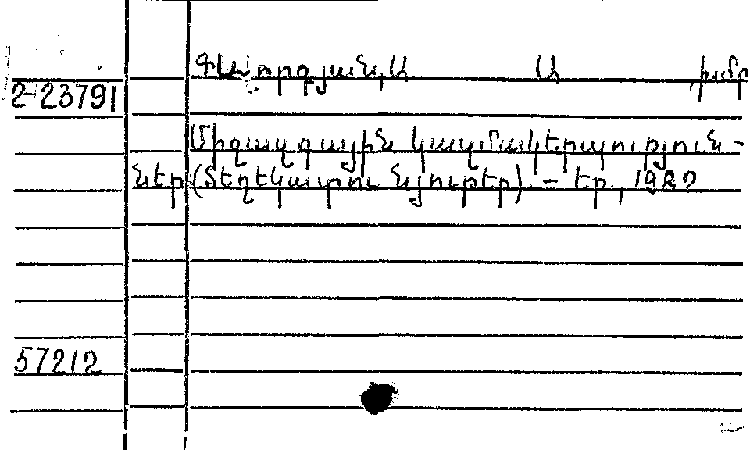 Գևորգյան, Ա Ա , խմբ
2-23791
Միջազգային կազմակերպություն-
ներ (Տեղեկատու նյութեր) - Եր, 1982
57212